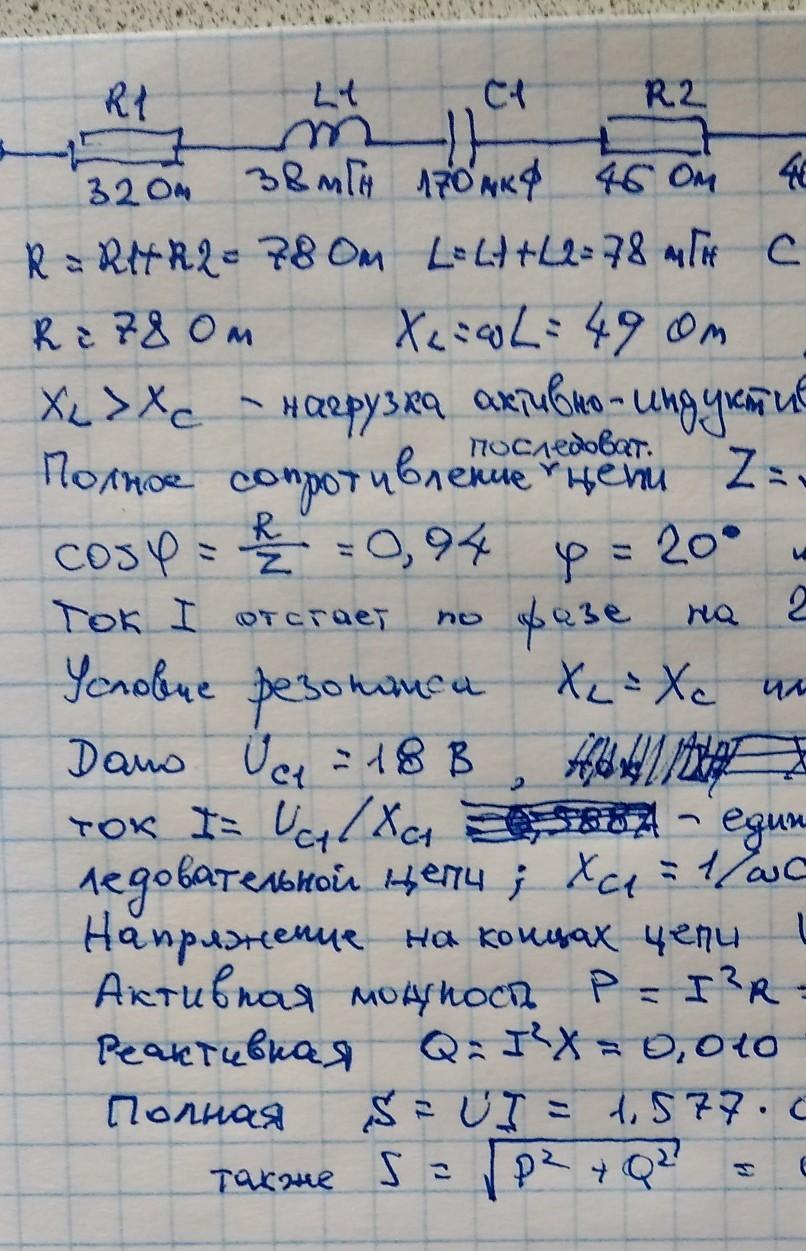 R1 L1 C1 R2
32 Ом 38 мГн 170 мкФ 46 Ом 40
R = R1+R2 = 78 Ом L=L1+L2=78 мГн C
R = 78 Ом XL=ωL= 49 Ом
XL > XC - нагрузка активно-индуктив
последоват.
Полное сопротивление цепи Z =
cosφ = R/Z = 0,94 φ = 20°
Ток I отстает по фазе на 2
Условие резонанса XL = XC ил
Дано UC1 = 18 В,
ток I = UC1/XC1 - един
ледовательной цепи; XC1 = 1/ωC
Напряжение на концах цепи U
Активная мощность P = I²R =
Реактивная Q = I²X = 0,010
Полная S = UI = 1,577 · 0
также S = √P² + Q² =